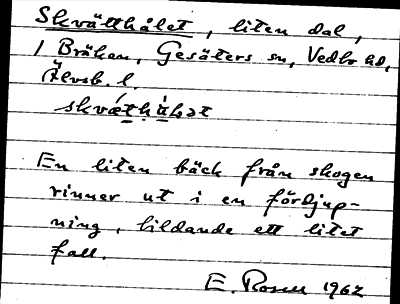 Skvätthålet, liten dal,
i Bråken, Gesäters sn, Vedbo hd,
Älvsb. l.
En liten bäck från skogen
rinner ut i en fördjup-
ning, bildande ett litet
fall.
E. Rosell 1962